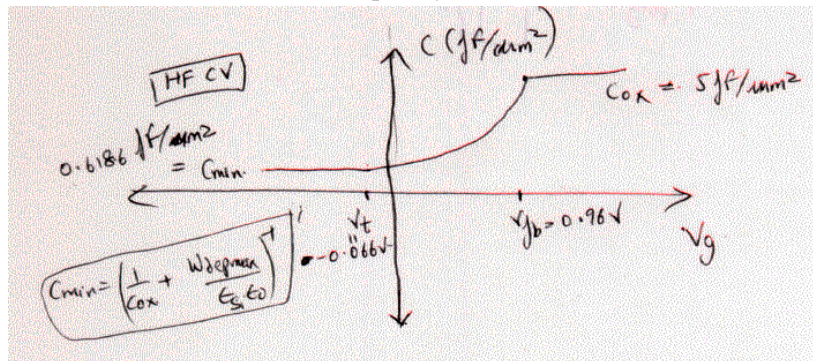 C (fF/um²)
HF CV
Cox = 5fF/um²
0.6186 fF/um²
= Cmin.
Vt
"
-0.066V
Vfb = 0.96V
Vg
Cmin = (1/Cox + Wdepmax/εsi ε0)⁻¹